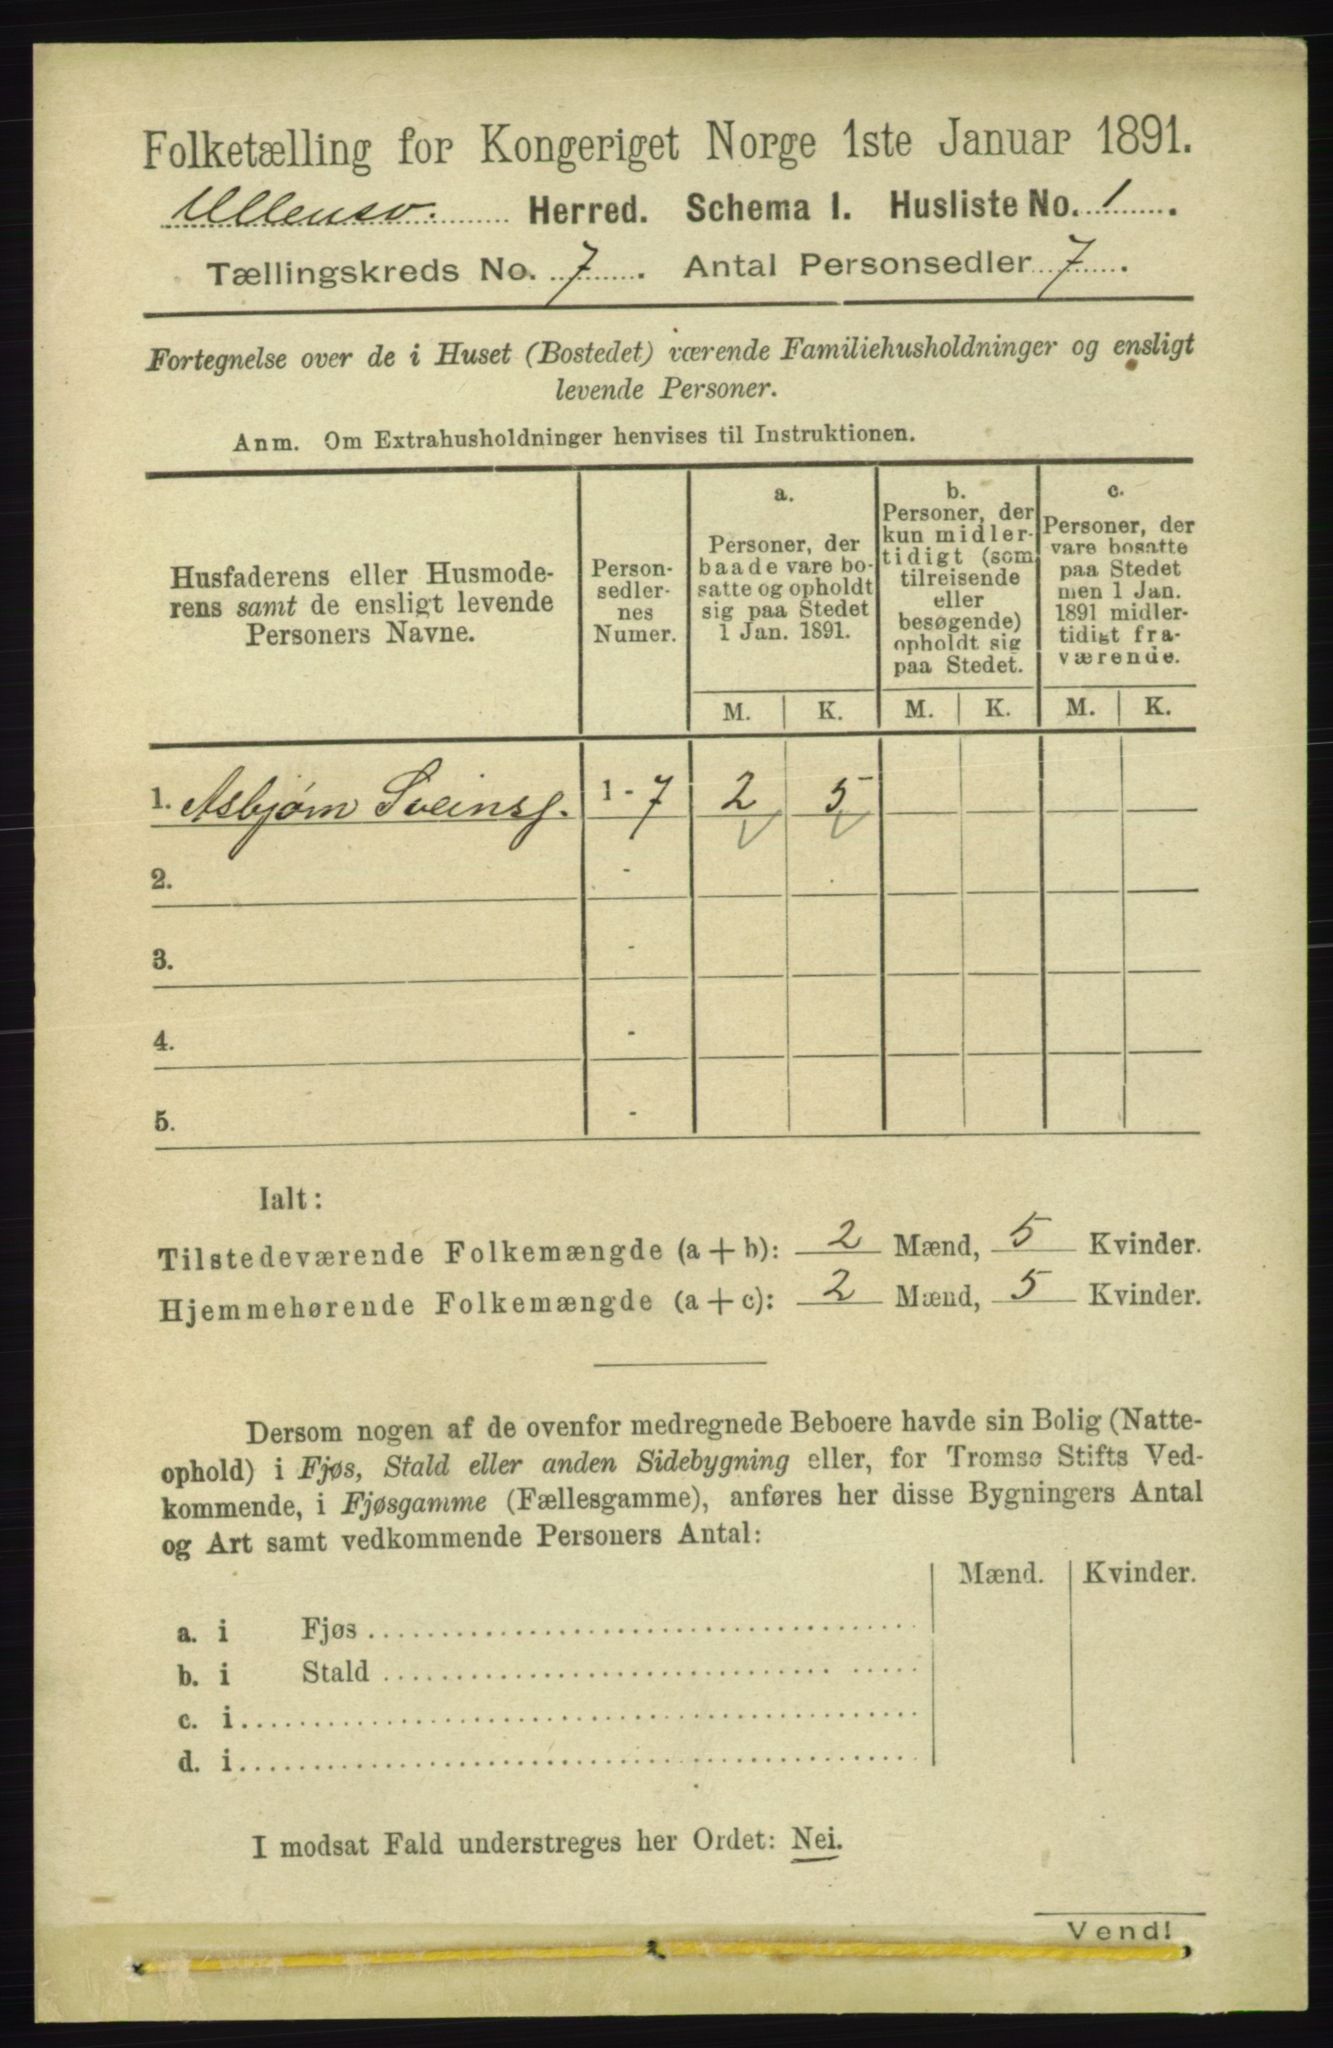 Folketælling for Kongeriget Norge 1ste Januar 1891.
Ullensv. Herred. Schema I. Husliste No. 1.
Tællingskreds No. 7. Antal Personsedler 7.
Fortegnelse over de i Huset (Bostedet) værende Familiehusholdninger og ensligt
levende Personer.
Anm. Om Extrahusholdninger henvises til Instruktionen.
Husfaderens eller Husmode-
rens samt de ensligt levende
Personers Navne.
Person-
sedler-
nes
Numer.
a.
Personer, der
baade vare bo-
satte og opholdt
sig paa Stedet
1 Jan. 1891.
b.
Personer, der
kun midler-
tidigt (som
tilreisende
eller
besøgende)
opholdt sig
paa Stedet.
c.
Personer, der
vare bosatte
paa Stedet
men 1 Jan.
1891 midler-
tidigt fra-
værende.
M. K. M. K. M. K.
1. Asbjørn Sveinsf. 1 - 7 2 5
2. -
3. -
4. -
5. -
Ialt:
Tilstedeværende Folkemængde (a + b): 2 Mænd, 5 Kvinder.
Hjemmehørende Folkemængde (a + c): 2 Mænd, 5 Kvinder.
Dersom nogen af de ovenfor medregnede Beboere havde sin Bolig (Natte-
ophold) i Fjøs, Stald eller anden Sidebygning eller, for Tromsø Stifts Ved-
kommende, i Fjøsgamme (Fællesgamme), anføres her disse Bygningers Antal
og Art samt vedkommende Personers Antal:
Mænd. Kvinder.
a. i Fjøs
b. i Stald
c. i
d. i
I modsat Fald understreges her Ordet: Nei.
Vend!